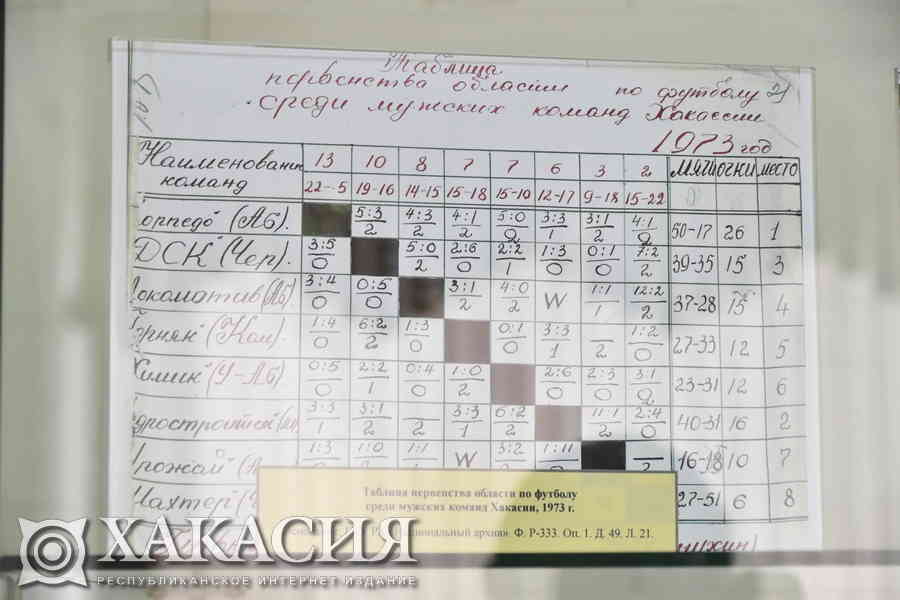 Таблица
первенства области по футболу
среди мужских команд Хакассии
1973 год
21
Наименование команд 13 10 8 7 7 6 3 2 мячи очки место
22-5 19-16 14-15 15-18 15-10 12-17 9-18 15-22
орпедо" (Аб). 5:3/2 4:3/2 4:1/2 5:0/2 3:3/1 3:1/2 4:1/2 50-17 26 1
ДСК" (Чер). 3:5/0 5:0/2 2:6/0 2:2/1 1:3/0 0:1/0 7:2/2 39-35 15 3
окомотив (Аб) 3:4/0 0:5/0 3:1/2 4:0/2 W 1:1/1 12:2/2 37-28 15 4
орняк" (Ком). 1:4/0 6:2/2 1:3/0 0:1/0 3:3/1 —/2 1:2/0 27-33 12 5
Химик" (У-Аб) 0:5/0 2:2/1 0:4/0 1:0/2 2:6/0 2:3/0 3:1/2 23-31 12 6
3:3/1 3:1/2 —/2 3:3/1 6:2/2 11:1/2 2:4/0 40-31 16 2
рожай" 1:3 1:0 1:1 W 3:2 1:11 —/2 16-18 10 7
Шахтер" 27-51 6 8
Таблица первенства области по футболу
среди мужских команд Хакасии, 1973 г.
Национальный архив» Ф. Р-333. Оп. 1. Д. 49. Л. 21.
ХАКАСИЯ
РЕСПУБЛИКАНСКОЕ ИНТЕРНЕТ ИЗДАНИЕ